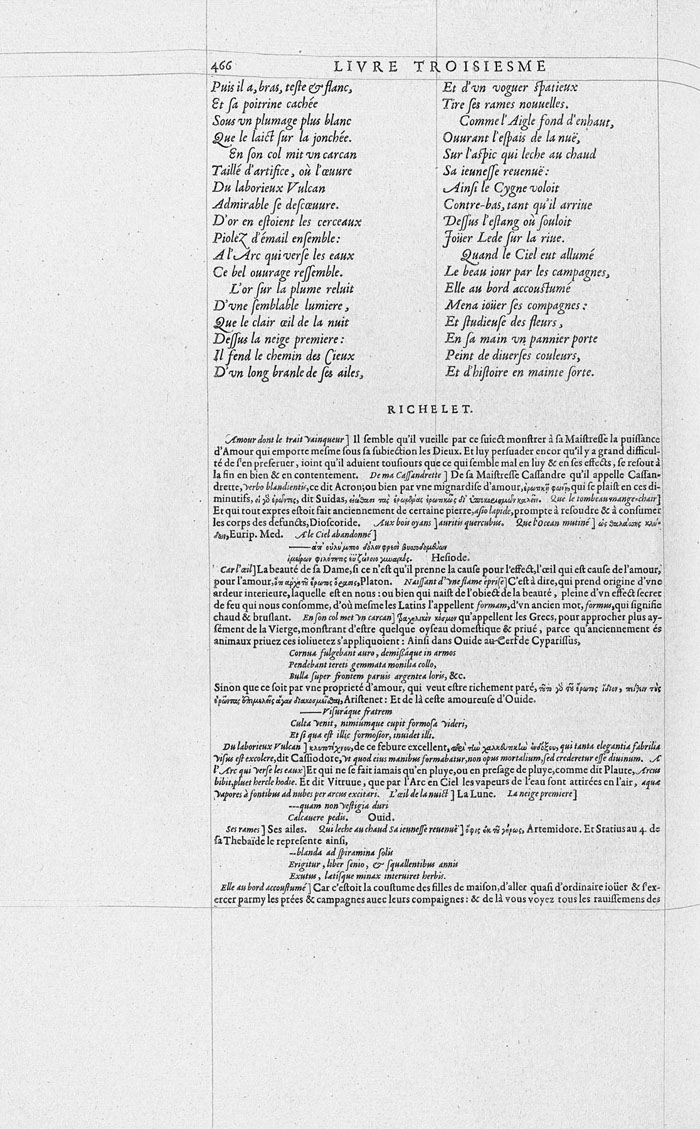 466 LIVRE TROISIESME
Puis il a, bras, teſte & flanc,
Et ſa poitrine cachée
Sous vn plumage plus blanc
Que le laict ſur la jonchée.
En ſon col mit vn carcan
Taillé d'artifice, où l'œuure
Du laborieux Vulcan
Admirable ſe deſcœuure.
D'or en eſtoient les cerceaux
Piolez d'émail enſemble:
A l'Arc qui verſe les eaux
Ce bel ouurage reſſemble.
L'or ſur la plume reluit
D'vne ſemblable lumiere,
Que le clair œil de la nuit
Deſſus la neige premiere:
Il fend le chemin des Cieux
D'vn long branle de ſes ailes,
Et d'vn voguer ſpatieux
Tire ſes rames nouuelles.
Comme l'Aigle fond d'enhaut,
Ouurant l'eſpais de la nuë,
Sur l'aſpic qui leche au chaud
Sa ieuneſſe reuenuë:
Ainſi le Cygne voloit
Contre-bas, tant qu'il arriue
Deſſus l'eſtang où ſouloit
Joüer Lede ſur la riue.
Quand le Ciel eut allumé
Le beau iour par les campagnes,
Elle au bord accouſtumé
Mena ioüer ſes compagnes:
Et ſtudieuſe des fleurs,
En ſa main vn pannier porte
Peint de diuerſes couleurs,
Et d'hiſtoire en mainte ſorte.
RICHELET.
Amour dont le trait vainqueur] Il ſemble qu'il vueille par ce ſuiect monſtrer à ſa Maiſtreſſe la puiſſance
d'Amour qui emporte meſme ſous ſa ſubiection les Dieux. Et luy perſuader encor qu'il y a grand difficul-
té de ſ'en preſeruer, ioint qu'il aduient touſiours que ce qui ſemble mal en luy & en ſes effects, ſe reſout à
la fin en bien & en contentement. De ma Caſſandrette] De ſa Maiſtreſſe Caſſandre qu'il appelle Caſſan-
drette, verbo blandientis, ce dit Acron; ou bien par vne mignardiſe d'amour, qui ſe plaiſt en ces di-
minutifs, dit Suidas, Que le tombeau mange-chair]
Et qui tout expres eſtoit fait anciennement de certaine pierre, aſio lapide, prompte à reſoudre & à conſumer
les corps des defuncts, Dioſcoride. Aux bois oyans] auritis quercubus. Que l'Ocean mutiné]
Eurip. Med. A le Ciel abandonné]
Heſiode.
Car l'œil] La beauté de ſa Dame, ſi ce n'eſt qu'il prenne la cauſe pour l'effect, l'œil qui eſt cauſe de l'amour,
pour l'amour, Platon. Naiſſant d'vne flame épriſe] C'eſt à dire, qui prend origine d'vne
ardeur interieure, laquelle eſt en nous: ou bien qui naiſt de l'obiect de la beauté, pleine d'vn effect ſecret
de feu qui nous conſomme, d'où meſme les Latins l'appellent formam, d'vn ancien mot, formus, qui ſignifie
chaud & bruſlant. En ſon col met vn carcan] qu'appellent les Grecs, pour approcher plus ay-
ſément de la Vierge, monſtrant d'eſtre quelque oyſeau domeſtique & priué, parce qu'anciennement és
animaux priuez ces ioliuetez s'appliquoient: Ainſi dans Ouide au Cerf de Cypariſſus,
Cornua fulgebant auro, demiſſáque in armos
Pendebant tereti gemmata monilia collo,
Bulla ſuper frontem paruis argentea loris, &c.
Sinon que ce ſoit par vne proprieté d'amour, qui veut eſtre richement paré,
Ariſtenet: Et de là ceſte amoureuſe d'Ouide.
——Viſuráque fratrem
Culta venit, nimiumque cupit formoſa videri,
Et ſi qua eſt illic formoſior, inuidet illi.
Du laborieux Vulcan] de ce febure excellent, qui tanta elegantia fabrilia
viſus eſt excolere, dit Caſſiodore, vt quod eius manibus formabatur, non opus mortalium, ſed crederetur eſſe diuinum. A
l'Arc qui verſe les eaux] Et qui ne ſe fait iamais qu'en pluye, ou en preſage de pluye, comme dit Plaute, Arcus
bibit, pluet hercle hodie. Et dit Vitruue, que par l'Arc en Ciel les vapeurs de l'eau ſont attirées en l'air, aquæ
vapores à fontibus ad nubes per arcus excitari. L'œil de la nuict] La Lune. La neige premiere]
---quam non veſtigia duri
Calcauere pedis. Ouid.
Ses rames] Ses ailes. Qui leche au chaud Sa ieuneſſe reuenuë] Artemidore. Et Statius au 4. de
ſa Thebaïde le repreſente ainſi,
--blanda ad ſpiramina ſolis
Erigitur, liber ſenio, & ſquallentibus annis
Exutus, latiſque minax interuiret herbis.
Elle au bord accouſtumé] Car c'eſtoit la couſtume des filles de maiſon, d'aller quaſi d'ordinaire ioüer & ſ'ex-
ercer parmy les prées & campagnes auec leurs compaignes: & de là vous voyez tous les rauiſſemens des